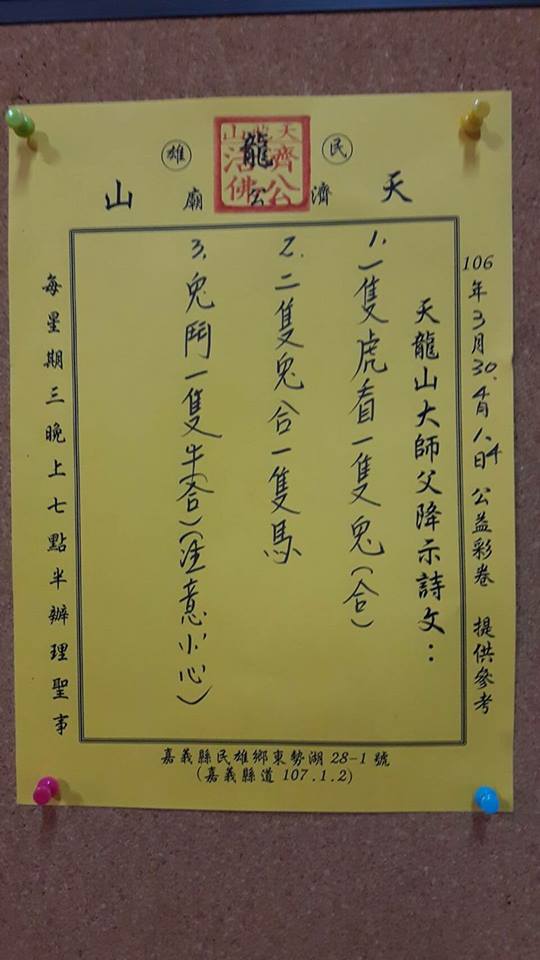 民 龍 雄
天 濟公廟 山
天龍山
濟公
活佛
106年3月30. 4月1. 4日 公益彩卷 提供參考
天龍山大師父降示詩文：
1. 一隻虎看一隻兔(合)
2. 二隻兔合一隻馬
3. 兔鬥一隻牛(合)(注意小心)
每星期三晚上七點半辦理聖事
嘉義縣民雄鄉東勢湖28-1號
(嘉義縣道107.1.2)